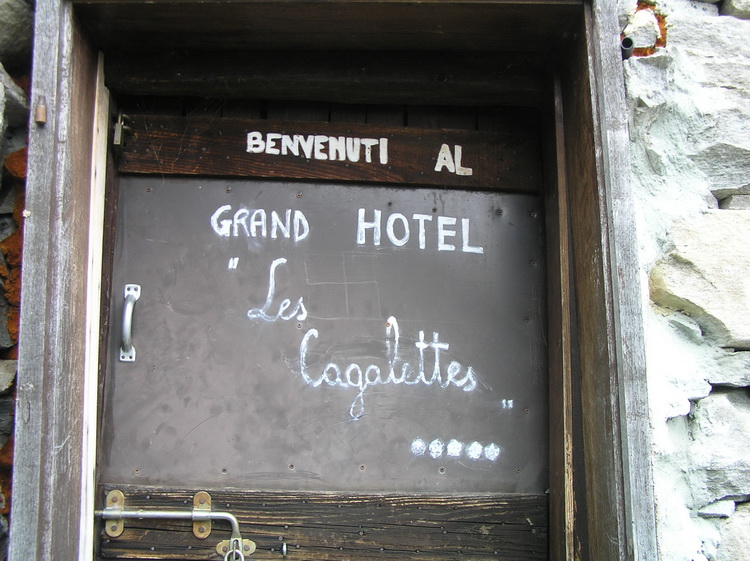 BENVENUTI AL
GRAND HOTEL
"Les
Cagalettes"